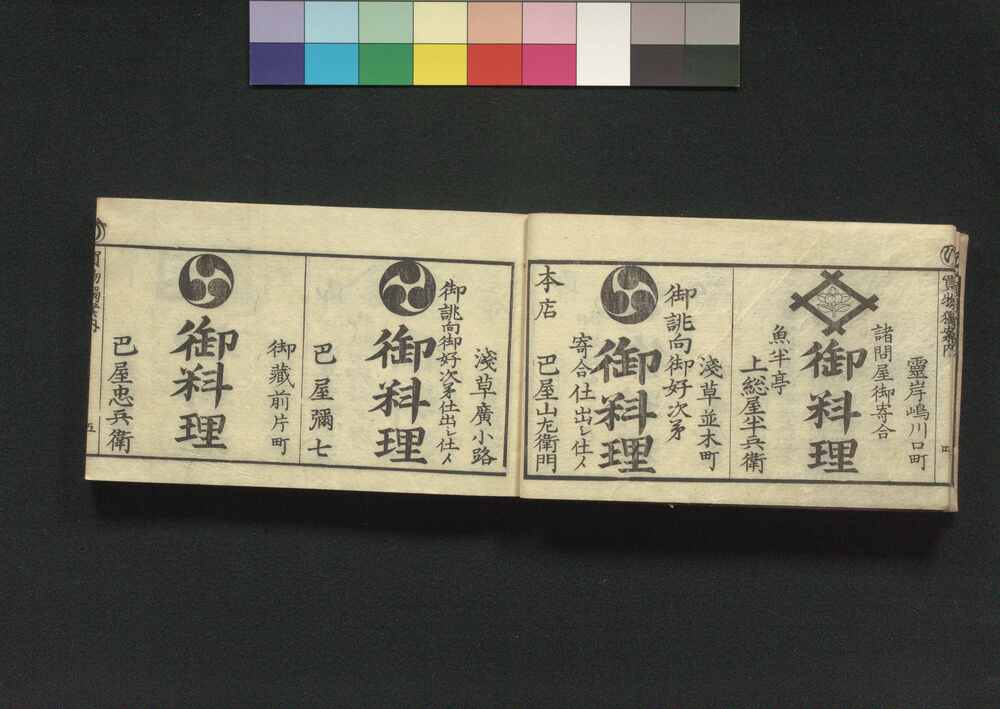 買物獨案内
靈岸嶋川口町
諸問屋御寄合
御料理
魚半亭
上総屋半兵衛
淺草並木町
御誂向御好次第
御料理
寄合仕出シ仕〆
本店
巴屋山左衛門
淺草廣小路
御誂向御好次第仕出シ仕〆
御料理
巴屋彌七
御藏前片町
御料理
巴屋忠兵衛
買物獨案内
五